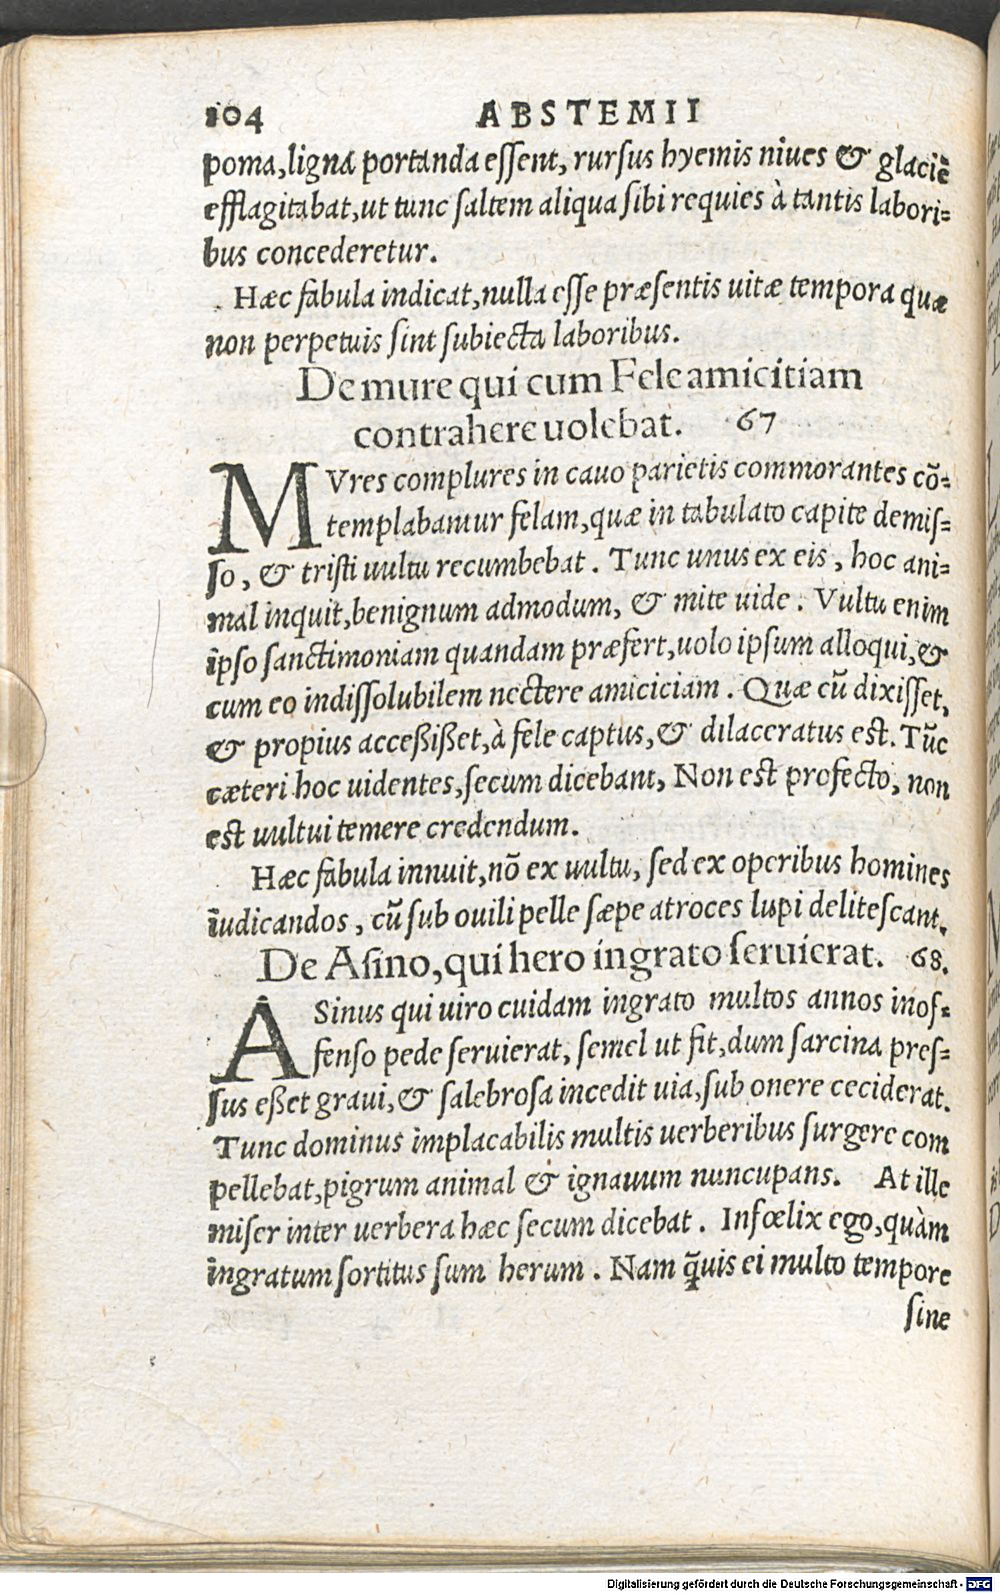 104 ABSTEMII
poma, ligna portanda essent, rursus hyemis niues & glaciẽ
efflagitabat, ut tunc saltem aliqua sibi requies à tantis labori=
bus concederetur.
Hæc fabula indicat, nulla esse præsentis uitæ tempora quæ
non perpetuis sint subiecta laboribus.
De mure qui cum Fele amicitiam
contrahere uolebat. 67
MVres complures in cauo parietis commorantes cõ=
templabantur felam, quæ in tabulato capite demis=
so, & tristi uultu recumbebat. Tunc unus ex eis, hoc ani=
mal inquit, benignum admodum, & mite uide. Vultu enim
ipso sanctimoniam quandam præfert, uolo ipsum alloqui, &
cum eo indissolubilem nectere amiciciam. Quæ cũ dixisset,
& propius accessisset, à fele captus, & dilaceratus est. Tũc
cæteri hoc uidentes, secum dicebant, Non est profecto, non
est uultui temere credendum.
Hæc fabula innuit, nõ ex uultu, sed ex operibus homines
iudicandos, cũ sub ouili pelle sæpe atroces lupi delitescant.
De Asino, qui hero ingrato seruierat. 68.
ASinus qui uiro cuidam ingrato multos annos inof=
fenso pede seruierat, semel ut fit, dum sarcina pres=
sus esset graui, & salebrosa incedit uia, sub onere ceciderat.
Tunc dominus implacabilis multis uerberibus surgere com
pellebat, pigrum animal & ignauum nuncupans. At ille
miser inter uerbera hæc secum dicebat. Infœlix ego, quàm
ingratum sortitus sum herum. Nam q̃uis ei multo tempore
sine
Digitalisierung gefördert durch die Deutsche Forschungsgemeinschaft - DFG